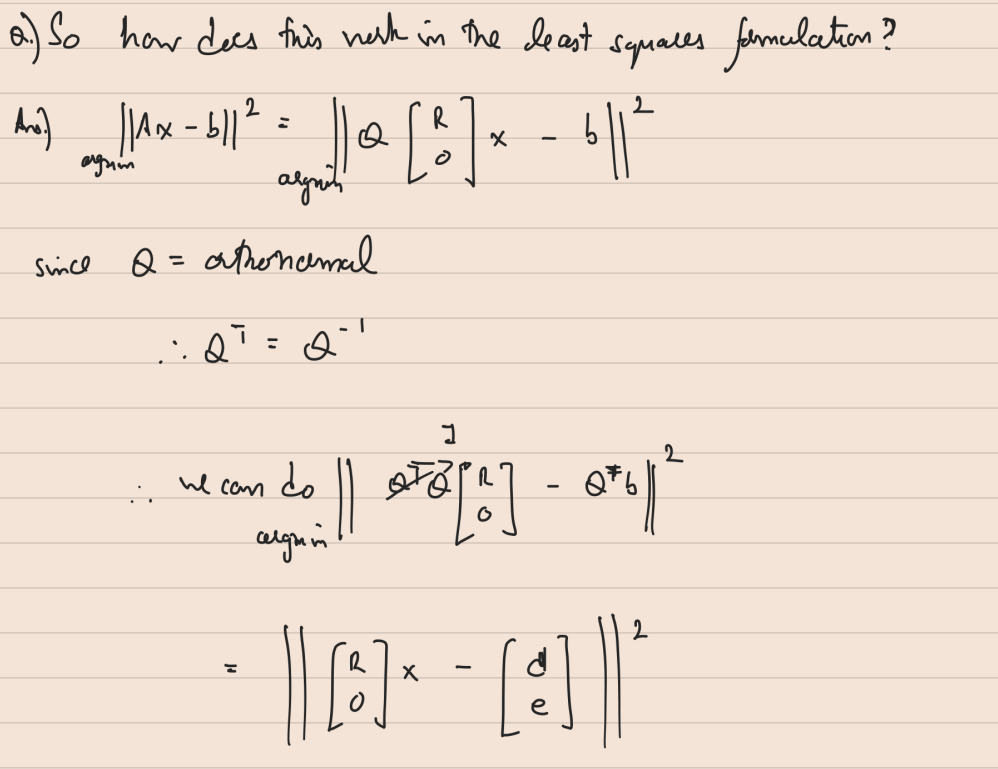 Q.) So how does this work in the least squares formulation?
Ans.) argmin ||Ax - b||² = argmin || Q [R 0] x - b ||²
since Q = orthonormal
∴ Qᵀ = Q⁻¹
I
∴ we can do argmin || QᵀQ [R 0] - Qᵀb ||²
= || [R 0] x - [d e] ||²